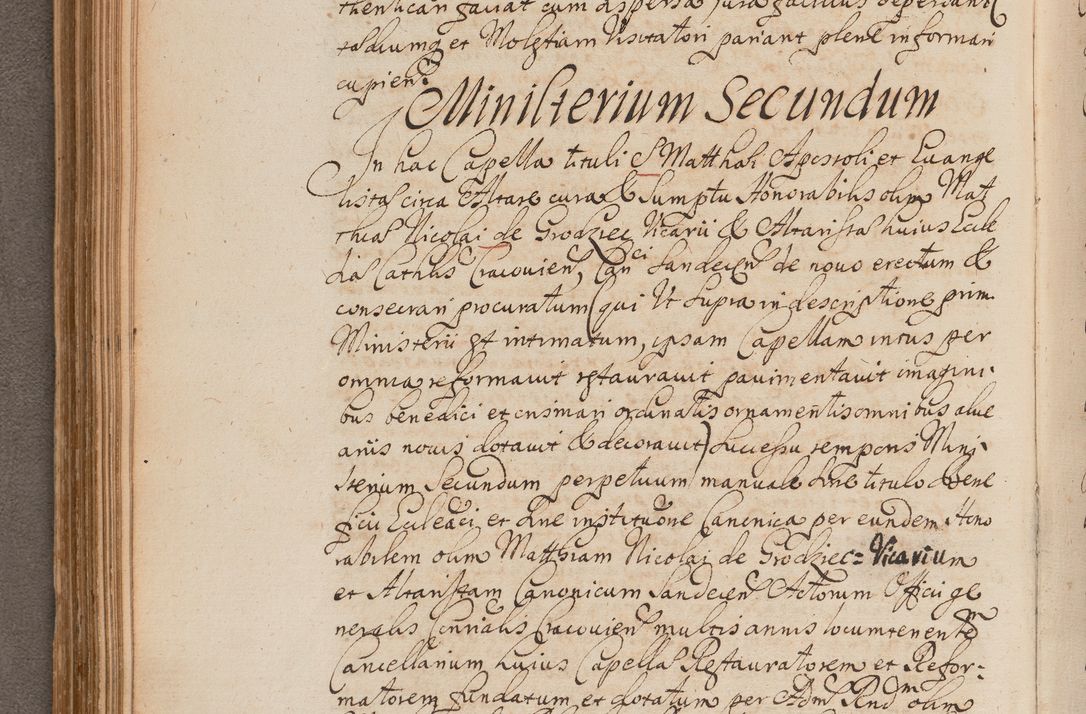 thentican faciat cum dispersa jura facilius deperdant(
tædiumq et Molestiam Visitatori pariant plene informari
cupienti
Ministerium Secundum
In hac Capella tituli S Matthæi Apostoli et Euange
listæ circa Altare cura & Sumptu Honorabilis olim Mat
thiæ Nicolai de Grodziec Vicarii & Altaristæ huius Eccle
siæ Cathlis Cracouien, Canci Sandecen de nouo erectum &
consecrari procuratum (qui Vt Supra in descriptione prim
Ministerii est intimatum, ipsam Capellam intus per
omnia reformauit restaurauit pauimentauit imagini-
bus benedici et crismari ordinatis ornamentis omnibus alue
ariis nouis dotauit & decorauit) Successu temporis Mini-
sterium Secundum perpetuum manuale sine titulo bene
ficii Ecleaci et sine institutione Canonica per eundem Hono
rabilem olim Matthiam Nicolai de Grodziec = Vicarium
et Altaristam Canonicum Sandecen Actorum Officii ge
neralis Consrialis Cracouien multis annis locumtenentem
Cancellarium huius Capellæ Restauratorem et Refor-
matorem fundatum et dotatum per Adm Rndm olim